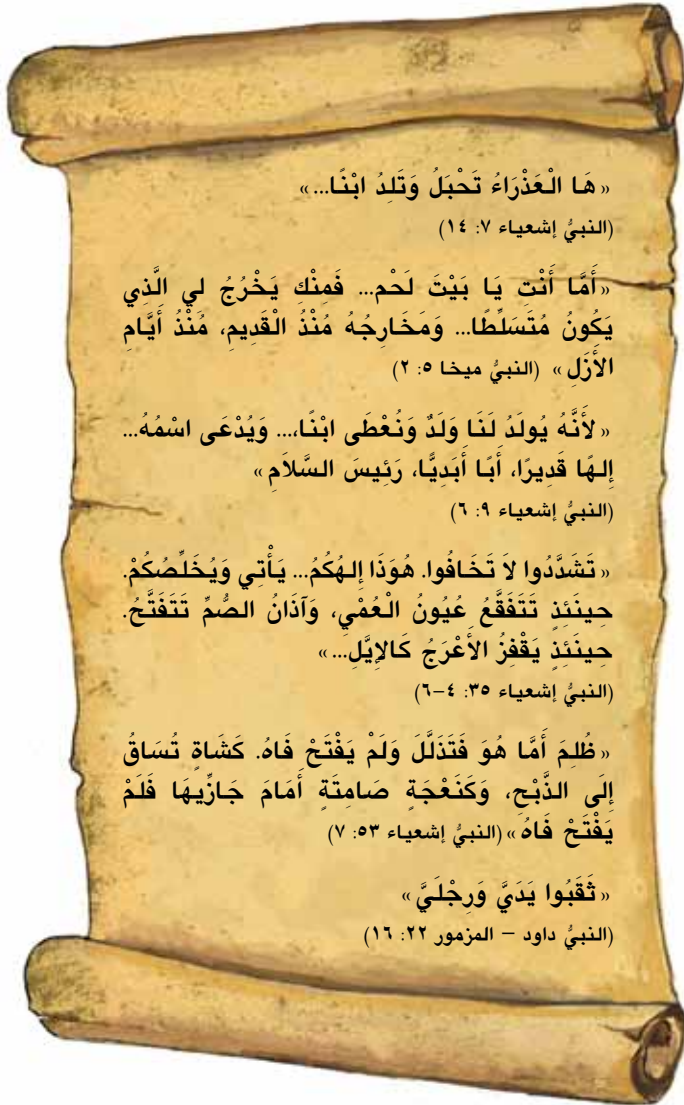 «هَا الْعَذْرَاءُ تَحْبَلُ وَتَلِدُ ابْنًا...»
(النبيُّ إشعياء ٧: ١٤)
«أَمَّا أَنْتِ يَا بَيْتَ لَحْمٍ... فَمِنْكِ يَخْرُجُ لِي الَّذِي
يَكُونُ مُتَسَلِّطًا... وَمَخَارِجُهُ مُنْذُ الْقَدِيمِ، مُنْذُ أَيَّامِ
الأَزَلِ» (النبيُّ ميخا ٥: ٢)
«لأَنَّهُ يُولَدُ لَنَا وَلَدٌ وَنُعْطَى ابْنًا،... وَيُدْعَى اسْمُهُ...
إِلهًا قَدِيرًا، أَبًا أَبَدِيًّا، رَئِيسَ السَّلاَمِ»
(النبيُّ إشعياء ٩: ٦)
«تَشَدَّدُوا لاَ تَخَافُوا. هُوَذَا إِلهُكُمُ... يَأْتِي وَيُخَلِّصُكُمْ.
حِينَئِذٍ تَتَفَقَّعُ عُيُونُ الْعُمْيِ، وَآذَانُ الصُّمِّ تَتَفَتَّحُ.
حِينَئِذٍ يَقْفِزُ الأَعْرَجُ كَالإِيَّلِ...»
(النبيُّ إشعياء ٣٥: ٤–٦)
«ظُلِمَ أَمَّا هُوَ فَتَذَلَّلَ وَلَمْ يَفْتَحْ فَاهُ. كَشَاةٍ تُسَاقُ
إِلَى الذَّبْحِ، وَكَنَعْجَةٍ صَامِتَةٍ أَمَامَ جَازِّيهَا فَلَمْ
يَفْتَحْ فَاهُ» (النبيُّ إشعياء ٥٣: ٧)
«ثَقَبُوا يَدَيَّ وَرِجْلَيَّ»
(النبيُّ داود – المزمور ٢٢: ١٦)